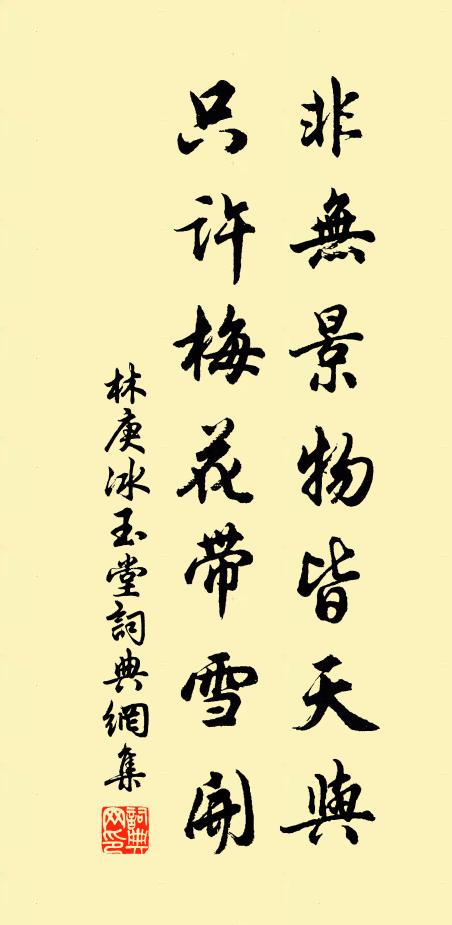 非無景物皆天與
只許梅花带雪開
林庚冰玉堂詞典網集
詞典
网印